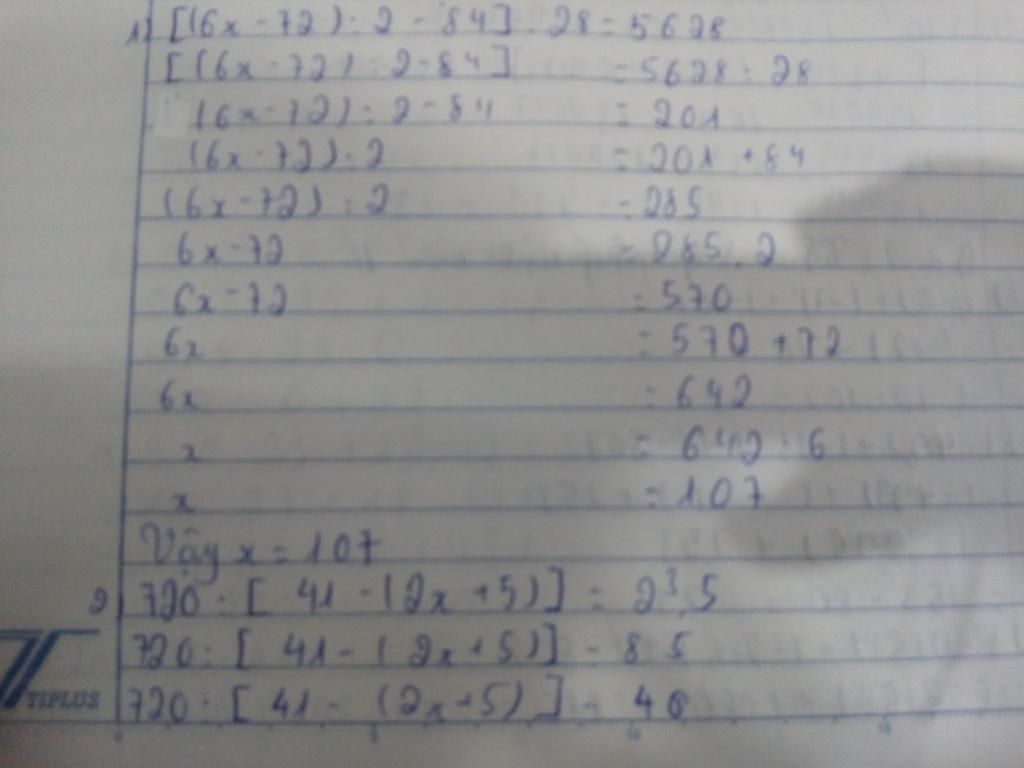 1) [(6x-72) : 2 - 84] . 28 = 5628
[(6x-72) : 2-84] = 5628 : 28
(6x-72) : 2-84 = 201
(6x-72) : 2 = 201 + 84
(6x-72) : 2 = 285
6x-72 = 285.2
6x-72 = 570
6x = 570 + 72
6x = 642
x = 642 : 6
x = 107
Vậy x = 107
2) 720 : [ 41 - (2x + 5)] = 2³.5
720 : [ 41 - (2x+5)] = 8.5
720 : [ 41 - (2x+5) ] = 40
TIPLUS
0 5 10 15